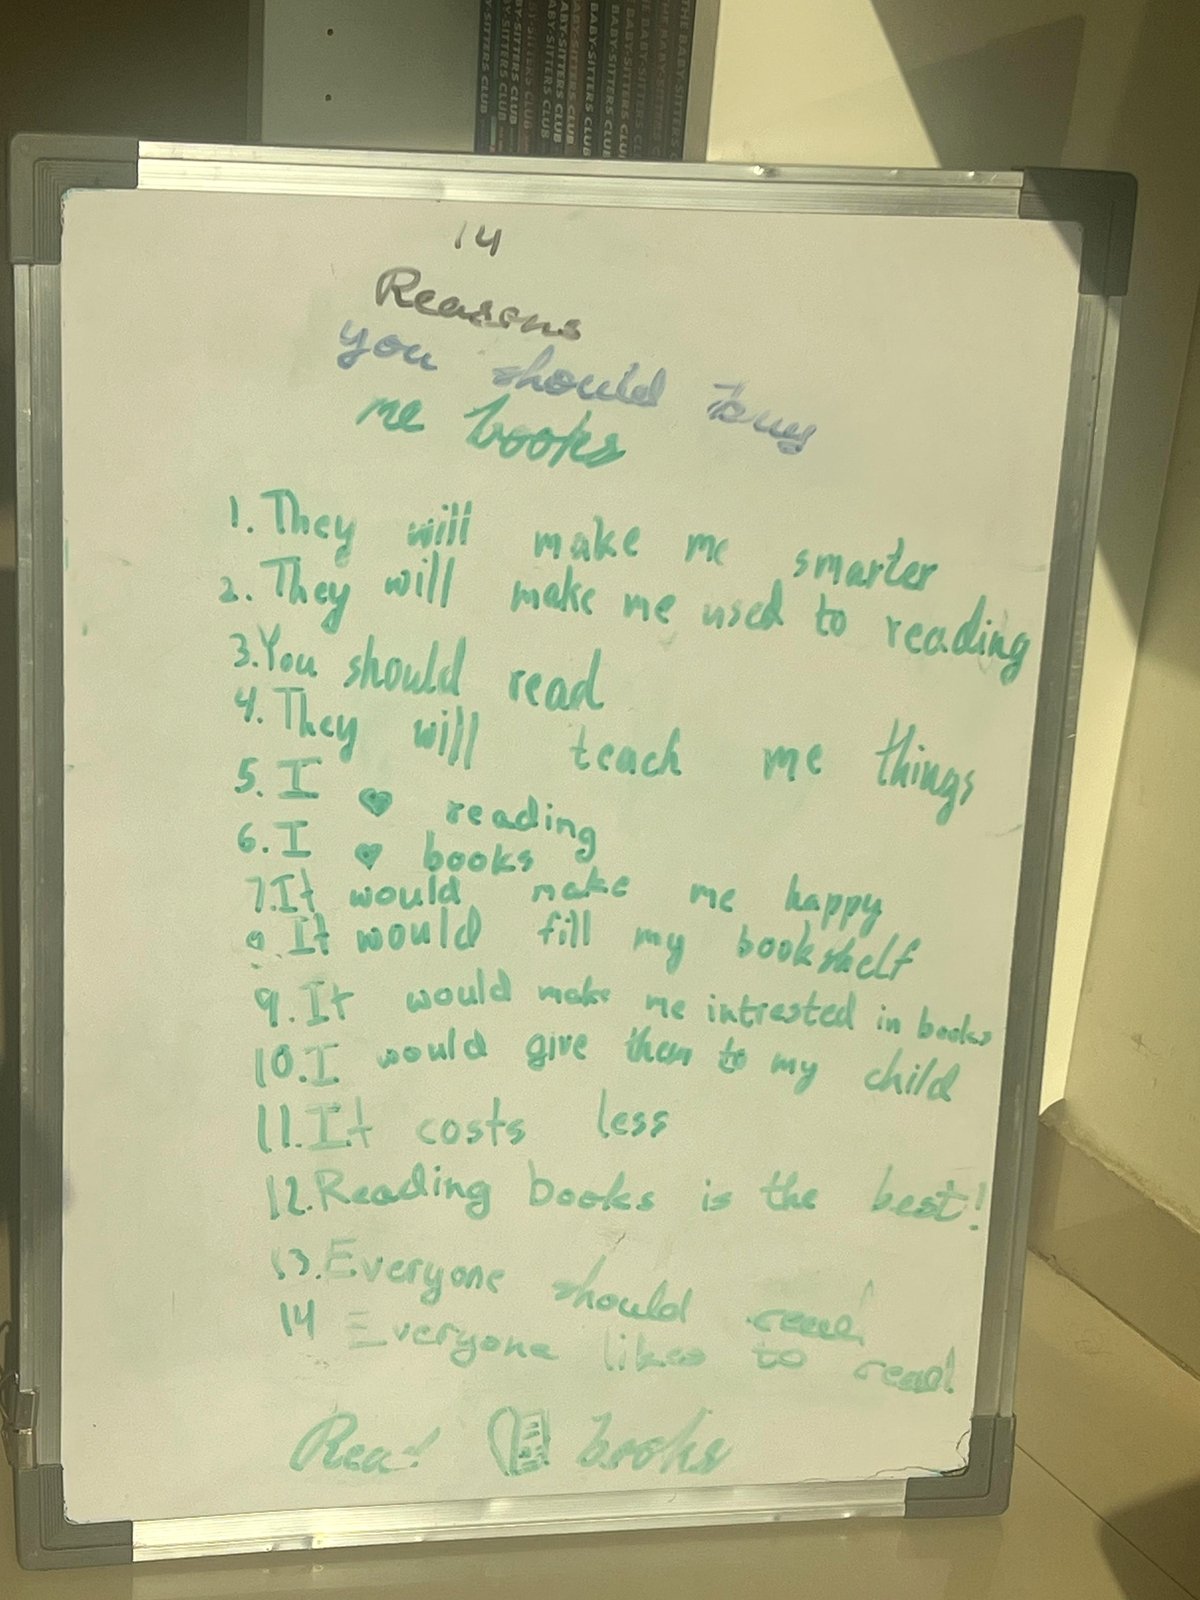 THE BABY-SITTERS C
THE BABY-SITTERS C
E BABY-SITTERS CL
BABY-SITTERS CLU
BABY-SITTERS CLUB
ABY-SITTERS CLUB
ABY-SITTERS CLUB
BY-SITTERS CLUB
Y-SITTERS CLUB
BY-SITTERS CLUB
Y-SITTERS CLUB
14
Reasons
you should buy
me books
1. They will make me smarter
2. They will make me used to reading
3. You should read
4. They will teach me things
5. I ♥ reading
6. I ♥ books
7. It would make me happy
It would fill my bookshelf
9. It would make me intrested in books
10. I would give them to my child
11. It costs less
12. Reading books is the best!
13. Everyone should read
14 Everyone likes to read
Read books